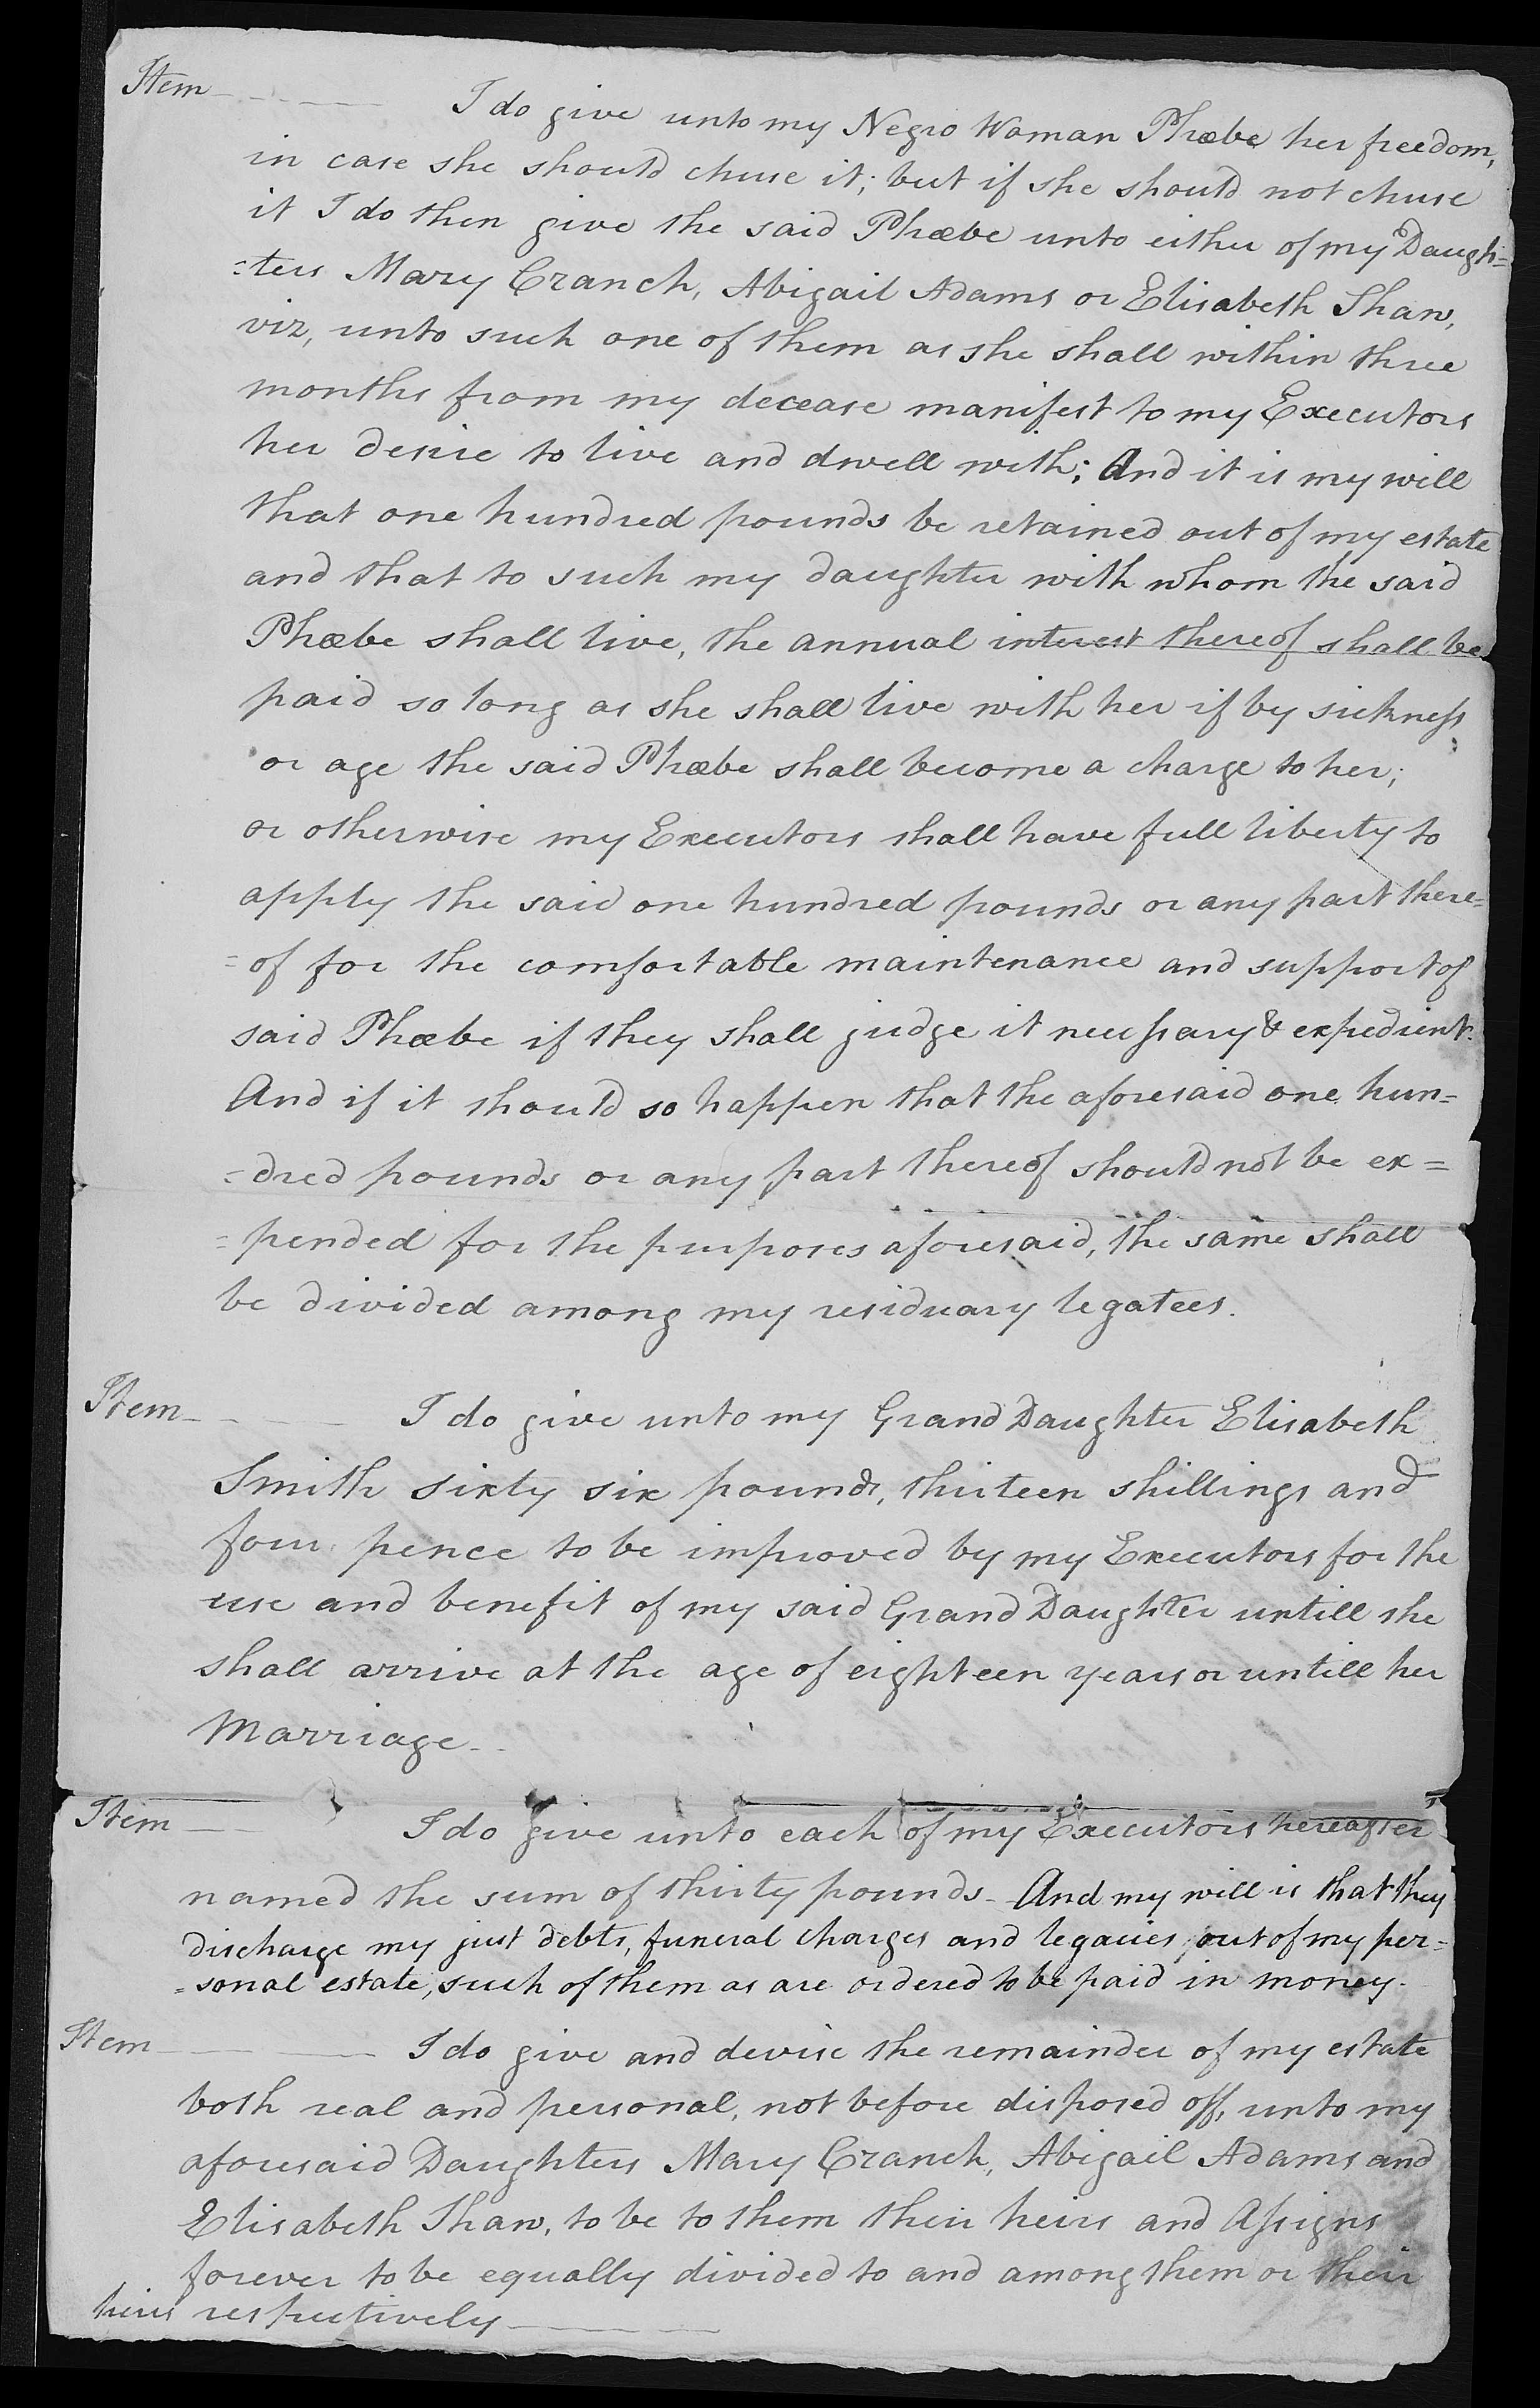 Item - - - — I do give unto my Negro Woman Phœbe her freedom,
in case she should chuse it; but if she should not chuse
it I do then give the said Phœbe unto either of my Daugh=
=ters Mary Cranch, Abigail Adams or Elisabeth Shaw,
viz, unto such one of them as she shall within three
months from my decease manifest to my Executors
her desire to live and dwell with; And it is my will
that one hundred pounds be retained out of my estate
and that to such my daughter with whom the said
Phœbe shall live, the annual interest thereof shall be
paid so long as she shall live with her if by sickness
or age the said Phœbe shall become a charge to her;
or otherwise my Executors shall have full liberty to
apply the said one hundred pounds or any part there=
=of for the comfortable maintenance and support of
said Phœbe if they shall judge it necessary & expedient.
And if it should so happen that the aforesaid one hun=
=dred pounds or any part thereof should not be ex=
=pended for the purposes aforesaid, the same shall
be divided among my residuary legatees.
Item - - — I do give unto my Grand Daughter Elisabeth
Smith sixty six pounds, thirteen shillings and
four pence to be improved by my Executors for the
use and benefit of my said Grand Daughter untill she
shall arrive at the age of eighteen years or untill her
Marriage - -
Item — I do give unto each of my Executors hereafter
named the sum of thirty pounds - And my will is that they
discharge my just debts, funeral charges and legacies, out of my per=
=sonal estate, such of them as are ordered to be paid in money.
Item - — — I do give and devise the remainder of my estate
both real and personal, not before disposed off, unto my
aforesaid Daughters Mary Cranch, Abigail Adams and
Elisabeth Shaw, to be to them their heirs and Assigns
forever to be equally divided to and among them or their
heirs respectively — — —